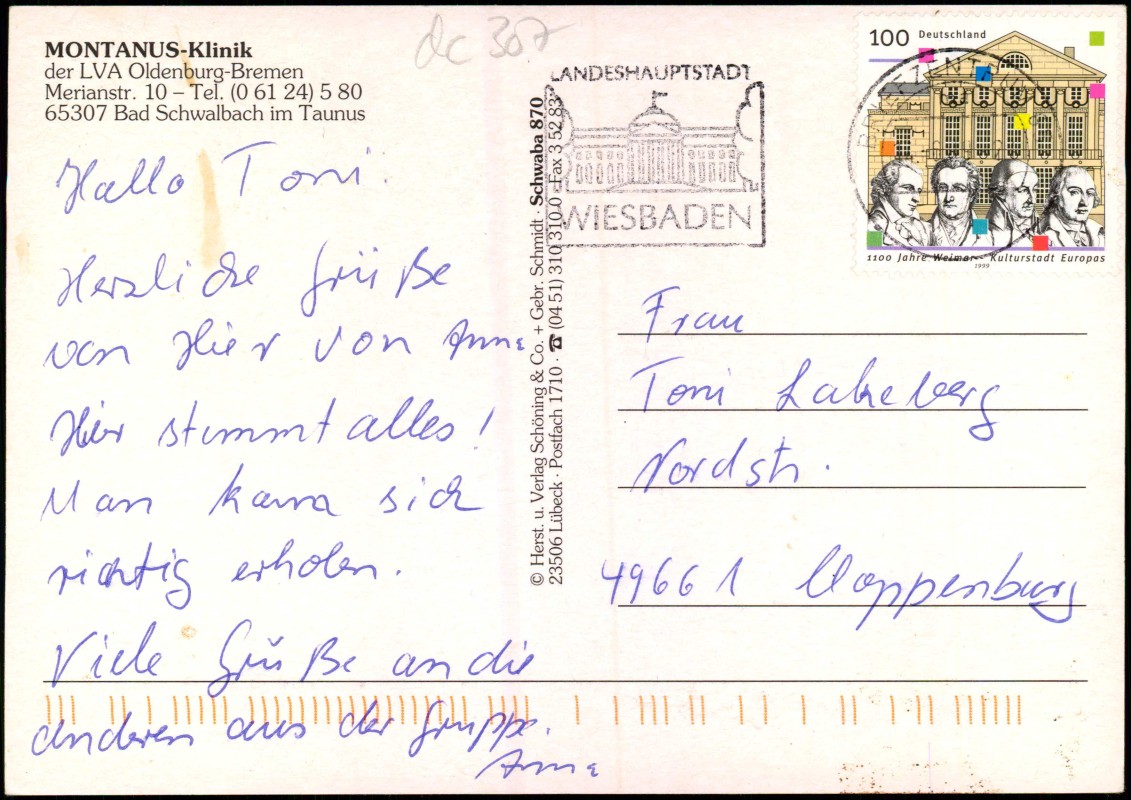 MONTANUS-Klinik
der LVA Oldenburg-Bremen
Merianstr. 10 – Tel. (0 61 24) 5 80
65307 Bad Schwalbach im Taunus
dc 307
Hallo Toni.
Herzliche Grüße
von Hier von Anne
Hier stimmt alles!
Man kann sich
richtig erholen.
Viele Grüße an die
anderen aus der Gruppe.
Anne
© Herst. u. Verlag Schöning & Co. + Gebr. Schmidt · Schwaba 870
23506 Lübeck · Postfach 1710 · ☎ (04 51) 310 310-0 · Fax 3 52 83
LANDESHAUPTSTADT
WIESBADEN
100 Deutschland
1100 Jahre Weimar – Kulturstadt Europas
1999
Frau
Toni
Nordstr.
49661 Cloppenburg